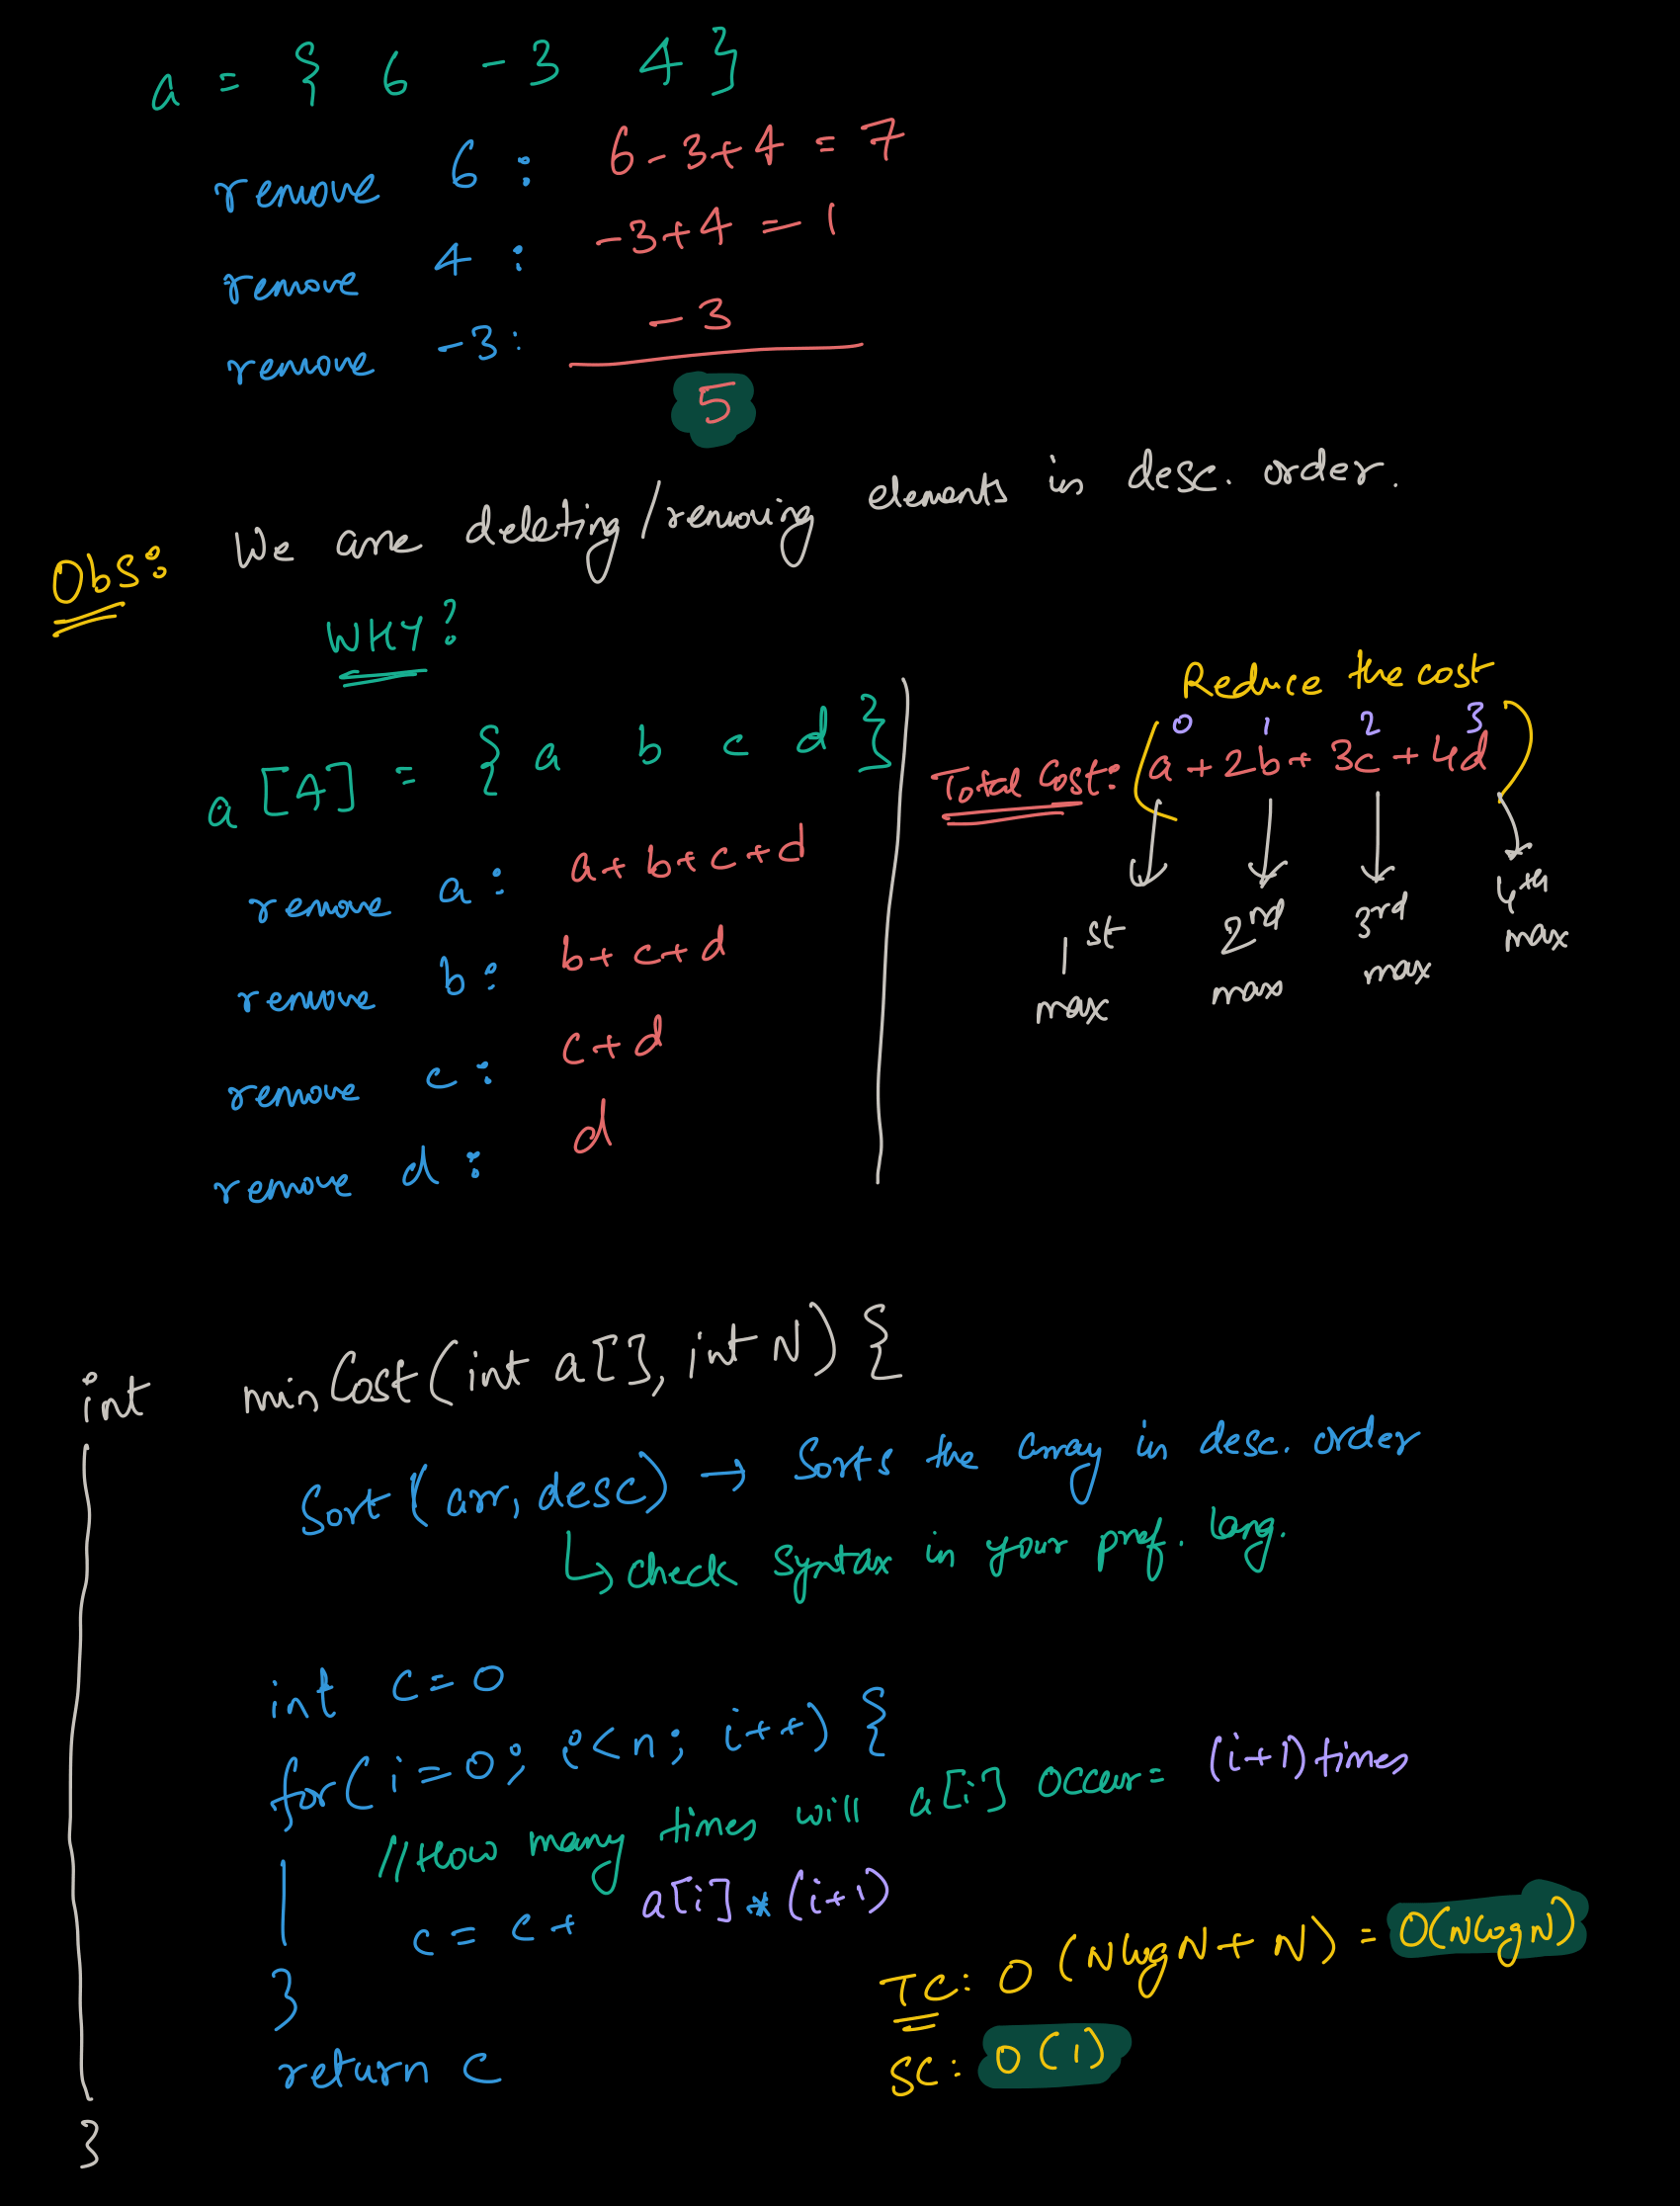 a = { 6 -3 4 }
remove 6 : 6-3+4 = 7
remove 4 : -3+4 = 1
remove -3 : -3
5
Obs: We are deleting/removing elements in desc. order.
WHY?
a[4] = { a b c d }
remove a : a+b+c+d
remove b : b+c+d
remove c : c+d
remove d : d
Reduce the cost
0 1 2 3
Total Cost: (a + 2b + 3c + 4d)
1st max 2nd max 3rd max 4th max
int minCost(int a[], int N) {
Sort(arr, desc) → Sorts the array in desc. order
↳ check syntax in your pref. lang.
int c = 0
for(i=0; i<n; i++) {
//How many times will a[i] occur = (i+1) times
c = c + a[i] * (i+1)
}
return c
}
TC: O(NlogN + N) = O(NlogN)
SC: O(1)